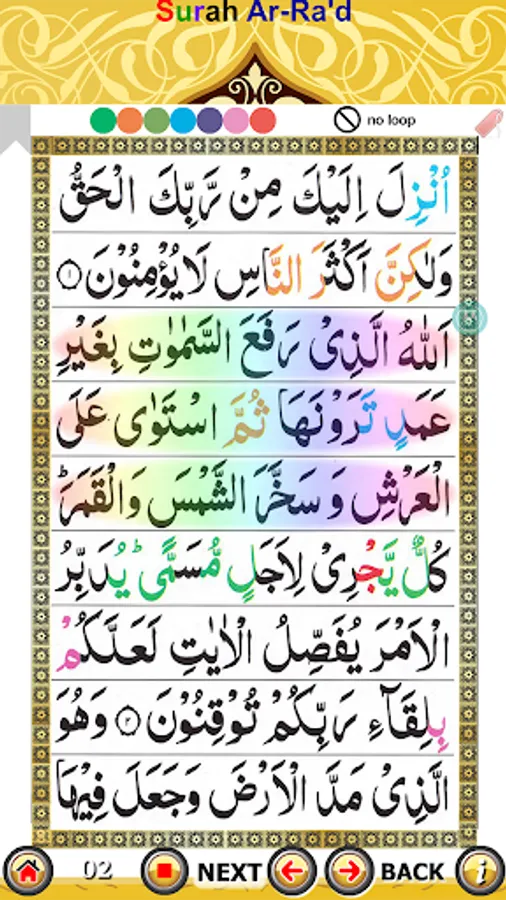 Surah Ar-Ra'd
no loop
اُنْزِلَ اِلَيْكَ مِنْ رَّبِّكَ الْحَقُّ
وَلٰكِنَّ اَكْثَرَ النَّاسِ لَا يُؤْمِنُوْنَ ۝۱
اَللّٰهُ الَّذِىْ رَفَعَ السَّمٰوٰتِ بِغَيْرِ
عَمَدٍ تَرَوْنَهَا ثُمَّ اسْتَوٰى عَلَى
الْعَرْشِ وَ سَخَّرَ الشَّمْسَ وَالْقَمَرَ ؕ
كُلٌّ يَّجْرِىْ لِاَجَلٍ مُّسَمًّى ؕ يُدَبِّرُ
الْاَمْرَ يُفَصِّلُ الْاٰيٰتِ لَعَلَّكُمْ
بِلِقَآءِ رَبِّكُمْ تُوْقِنُوْنَ ۝۲ وَهُوَ
الَّذِىْ مَدَّ الْاَرْضَ وَجَعَلَ فِيْهَا
02 NEXT BACK i